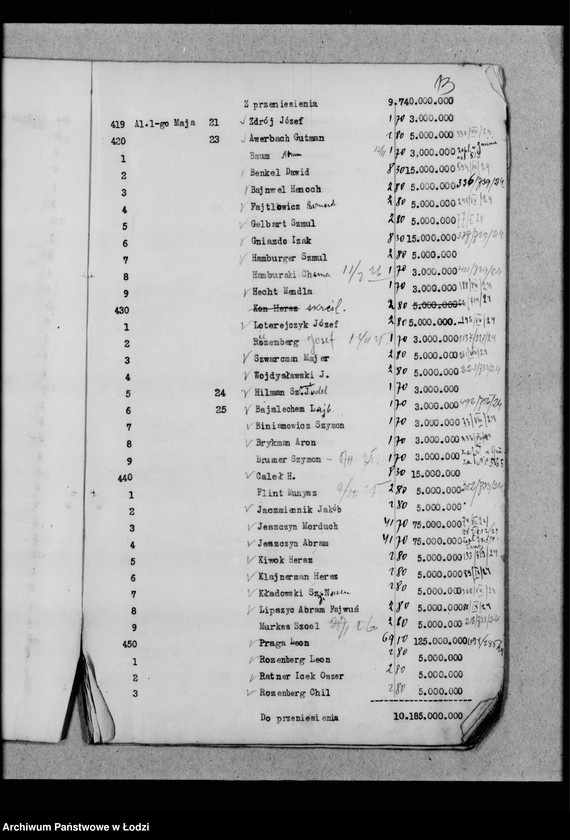 13
Z przeniesienia 9.740.000.000
419 Al.1-go Maja 21 Zdrój Józef 1 70 3.000.000
420 23 Awerbach Gutman 2 80 5.000.000
1 Baum 1 70 3.000.000
2 Benkel Dawid 8 30 15.000.000
3 Bajnwel Henoch 2 80 5.000.000 336/739/24
4 Fajtlowicz 2 80 5.000.000
5 Gelbart Szmul 2 80 5.000.000
6 Gniazdo Izak 8 30 15.000.000
7 Hamburger Szmul 2 80 5.000.000
8 Hamburski 11/2 26 1 70 3.000.000
9 Hecht Mendla 1 70 3.000.000
430 Kon Hersz 2 80 5.000.000
1 Loterejczyk Józef 2 80 5.000.000
2 Rozenberg Josef 1 70 3.000.000
3 Szwarcman Majer 2 80 5.000.000
4 Wojdysławski J. 2 80 5.000.000
5 24 Hilman Sz. Judel 1 70 3.000.000
6 25 Bajmlechem Lajb 1 70 3.000.000
7 Binianowicz Szymon 1 70 3.000.000
8 Brykman Aron 1 70 3.000.000
9 Brumer Szymon 1 70 3.000.000
440 Caleł H. 8 30 15.000.000
1 Flint Munysz 2 80 5.000.000
2 Jaczmiennik Jakób 2 80 5.000.000
3 Jeszczyn Morduch 41 70 75.000.000
4 Jeszczyn Abram 41 70 75.000.000
5 Kiwok Hersz 2 80 5.000.000
6 Klajnerman Hersz 2 80 5.000.000
7 Kładowski Sz. 2 80 5.000.000
8 Lipszyc Abram Fajwuś 2 80 5.000.000
9 Murkes Szoel 2 80 5.000.000
450 Praga Leon 69 10 125.000.000
1 Rozenberg Leon 2 80 5.000.000
2 Ratner Icek Oszer 2 80 5.000.000
3 Rozenberg Chil 2 80 5.000.000
Do przeniesienia 10.185.000.000
Archiwum Państwowe w Łodzi